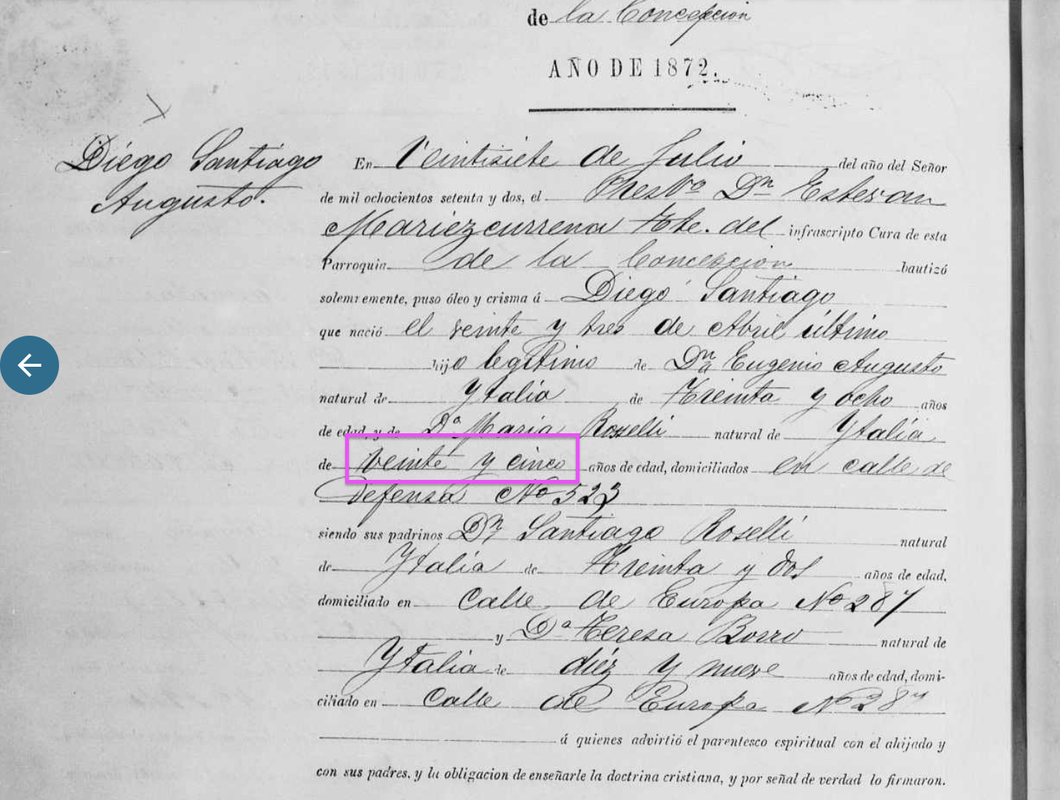 de la Concepcion
AÑO DE 1872.
Diego Santiago
Augusto.
En Veintisiete de Julio del año del Señor
de mil ochocientos setenta y dos, el Presb.º Dn Estevan
Mariezcurrena Tte. del infrascripto Cura de esta
Parroquia de la Concepcion bautizó
solemnemente, puso óleo y crisma á Diego Santiago
que nació el veinte y tres de Abril último
hijo legítimo de Dn Eugenio Augusto
natural de Ytalia de treinta y ocho años
de edad, y de Dª Maria Roselli natural de Ytalia
de veinte y cinco años de edad, domiciliados en calle de
Defensa Nº 523
siendo sus padrinos Dn Santiago Roselli natural
de Ytalia de treinta y dos años de edad,
domiciliado en Calle de Europa Nº 287
y Dª Teresa Borro natural de
Ytalia de diez y nueve años de edad, domi-
ciliado en Calle de Europa Nº 287
á quienes advirtió el parentesco espiritual con el ahijado y
con sus padres, y la obligacion de enseñarle la doctrina cristiana, y por señal de verdad lo firmaron.